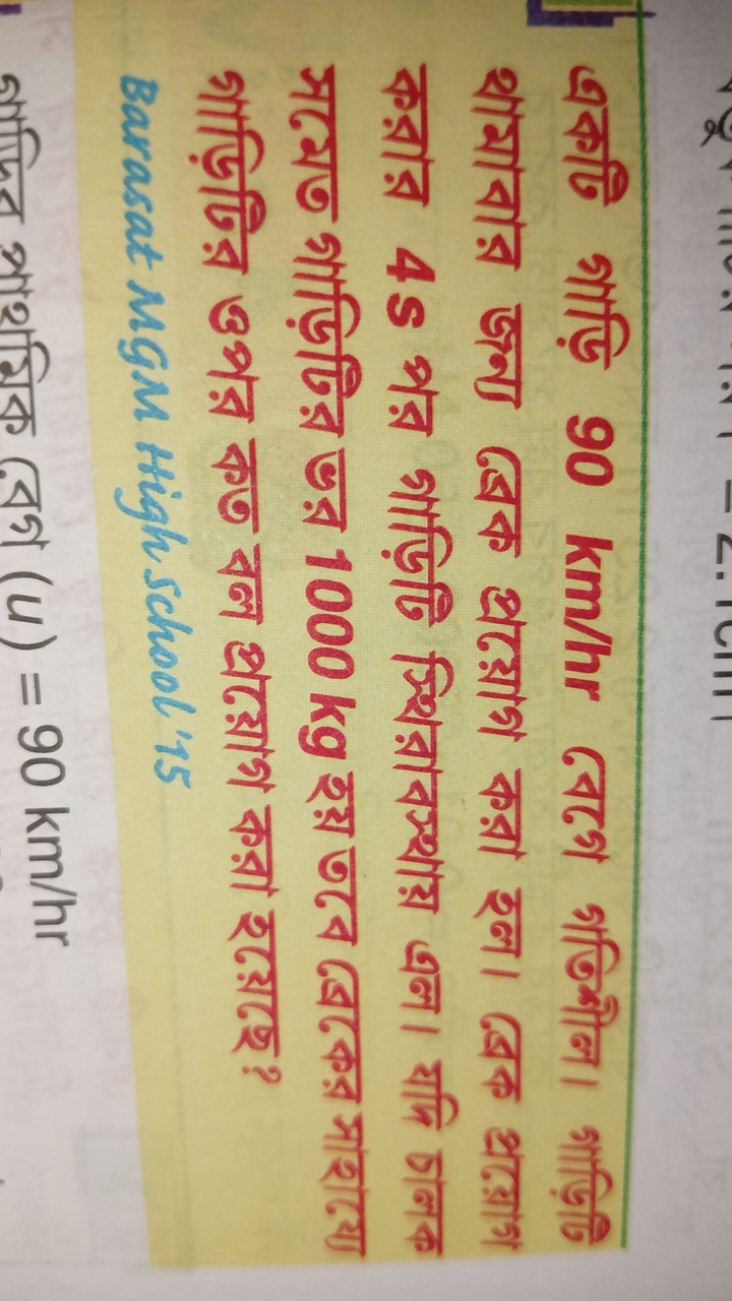 = 2.1cm
একটি গাড়ি 90 km/hr বেগে গতিশীল। গাড়িটি
থামাবার জন্য ব্রেক প্রয়োগ করা হল। ব্রেক প্রয়োগ
করার 4s পর গাড়িটি স্থিরাবস্থায় এল। যদি চালক
সমেত গাড়িটির ভর 1000 kg হয় তবে ব্রেকের সাহায্যে
গাড়িটির ওপর কত বল প্রয়োগ করা হয়েছে?
Barasat MGM High School '15
গাড়ির প্রাথমিক বেগ (u) = 90 km/hr